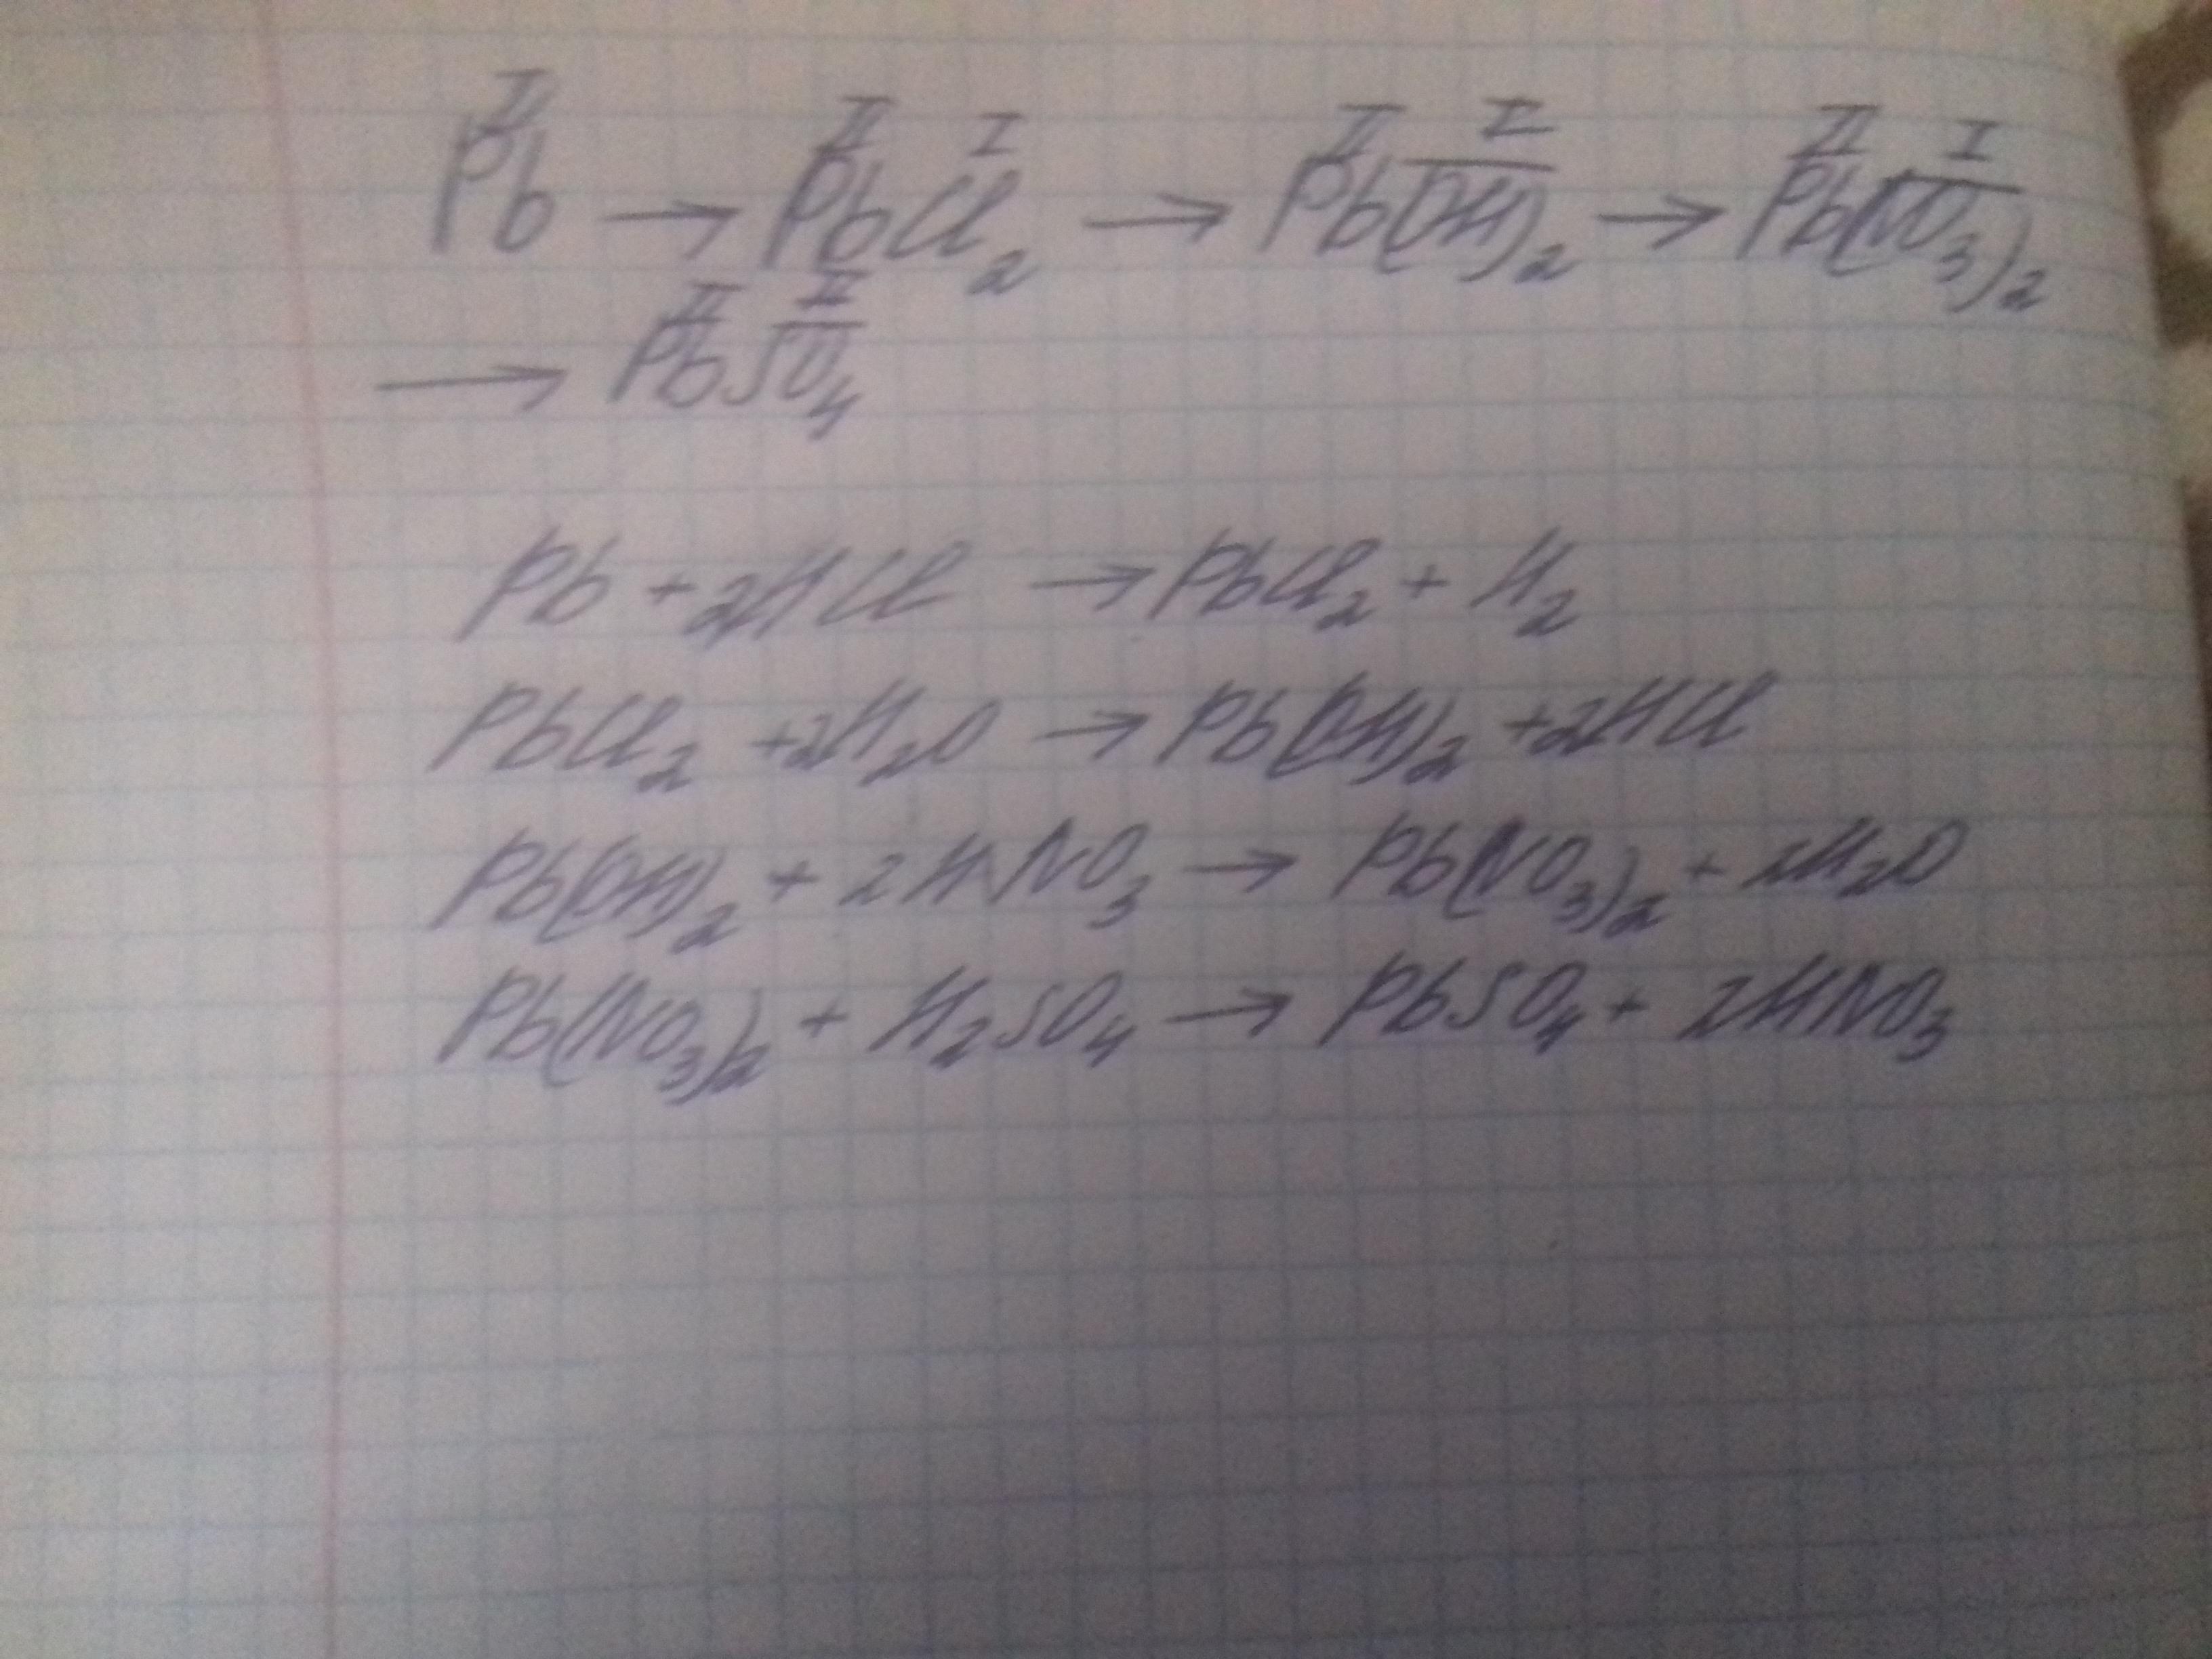 II II I II I II I
Pb → PbCl₂ → Pb(OH)₂ → Pb(NO₃)₂
II II
→ PbSO₄
Pb + 2HCl → PbCl₂ + H₂
PbCl₂ + 2H₂O → Pb(OH)₂ + 2HCl
Pb(OH)₂ + 2HNO₃ → Pb(NO₃)₂ + 2H₂O
Pb(NO₃)₂ + H₂SO₄ → PbSO₄ + 2HNO₃